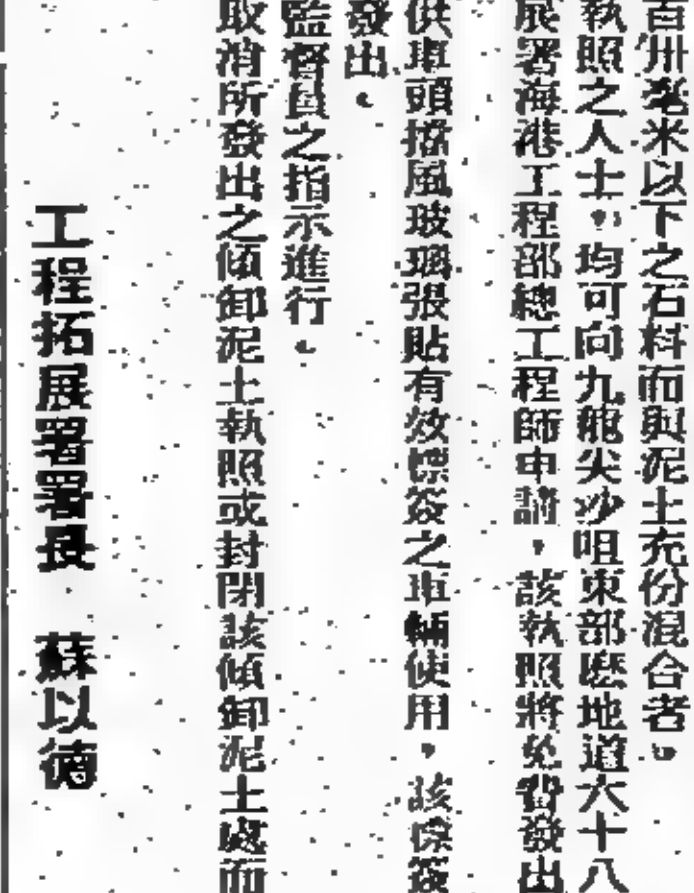 百卅毫米以下之石料而與泥土充份混合者。
執照之人士，均可向九龍尖沙咀東部麼地道六十八
展署海港工程部總工程師申請，該執照將免費發出
供車頭擋風玻璃張貼有效標簽之車輛使用，該標簽
發出。
監督員之指示進行。
取消所發出之傾卸泥土執照或封閉該傾卸泥土處而
工程拓展署署長 蘇以德